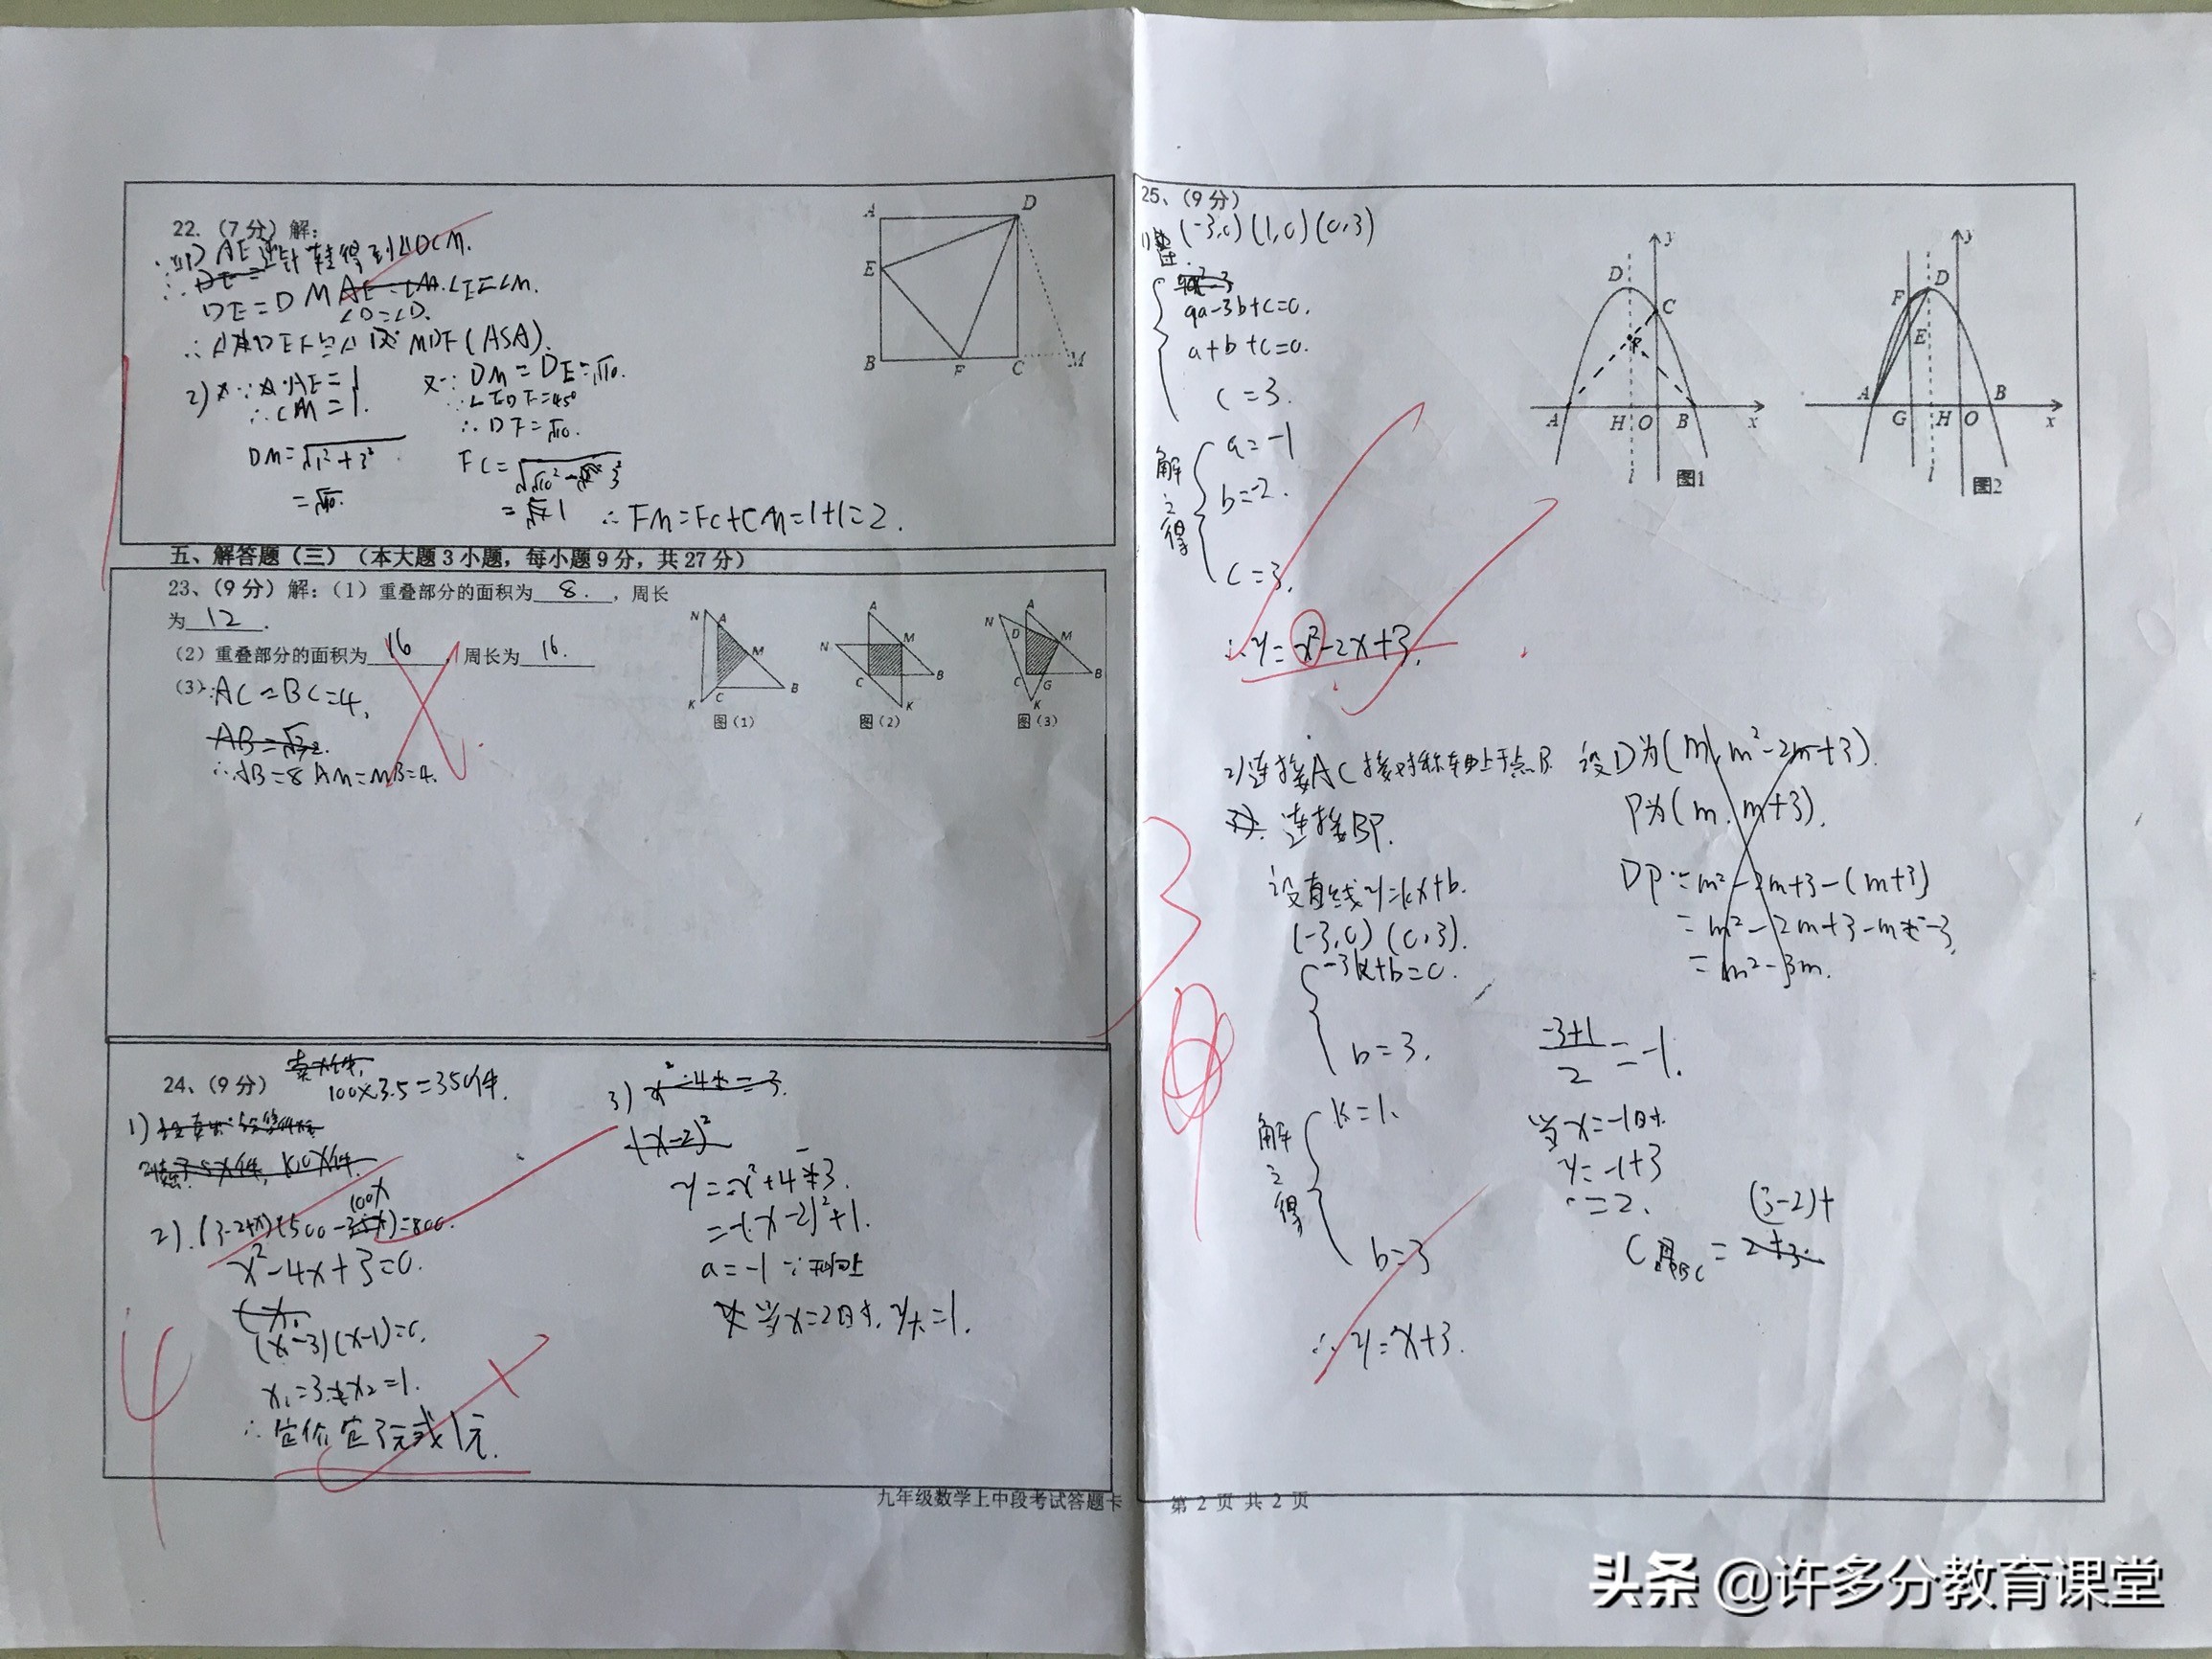 22.(7分)解:
DE=DM
∠D=∠D.
MDF(ASA).
2)
AE=1
∴CM=1.
DM=√1²+3²
=√10.
又∵DM=DE=√10.
∵∠EDF=45°
∴DF=√10.
FC=
∴FM=FC+CM=1+1=2.
A
D
E
B
F
C
M
五、解答题(三)(本大题3小题,每小题9分,共27分)
23、(9分)解:(1)重叠部分的面积为 8. ,周长
为 12 .
(2)重叠部分的面积为 16 ,周长为 16.
(3)∵AC=BC=4,
AB=√32.
∴AB=8 AM=MB=4.
N A M K C B
图(1)
A N M C B K
图(2)
A N D M C G B K
图(3)
24、(9分)
100×3.5=350件.
1)
2).(3-2+x)(500-100x)=800.
x²-4x+3=0.
(x-3)(x-1)=0.
x₁=3 x₂=1.
∴定价定3元或1元.
3) x²-4x=3.
(x-2)²
y=-x²+4x-3.
=-(x-2)²+1.
a=-1
当x=2时,y大=1.
4
九年级数学上中段考试答题卡 第 2 页 共 2 页
25、(9分)
(-3,0)(1,0)(0,3)
9a-3b+c=0.
a+b+c=0.
c=3.
解之得
a=-1
b=-2.
c=3.
∴y=-x²-2x+3.
D y C P A H O B x l
图1
y D F E A G H O B x l
图2
2)连接AC接对称轴上于点P.
连接BP.
设直线y=kx+b.
(-3,0)(0,3).
-3k+b=0.
b=3.
解之得
k=1.
b=3
∴y=x+3.
设D为(m,m²-2m+3).
P为(m,m+3).
DP=m²-2m+3-(m+3)
=m²-2m+3-m-3.
=m²-3m.
-3+1
2
=-1.
当x=-1时.
y=-1+3
=2.
(3-2)+
3
头条 @许多分教育课堂